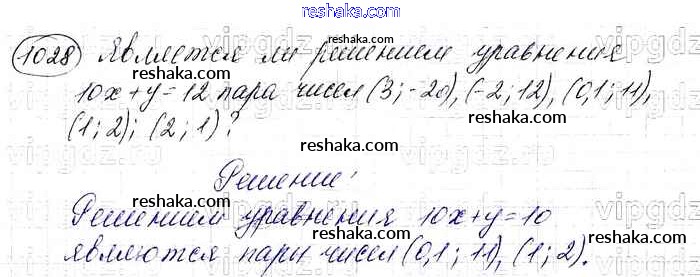 reshaka.com
1028 Является ли решением уравнения
reshaka.com
10x+y=12 пара чисел (3;-20), (-2;12), (0,1;11),
(1;2); (2;1)?
reshaka.com
Решение:
reshaka.com
Решением уравнения 10x+y=10
являются пары чисел (0,1;11), (1;2).
reshaka.com